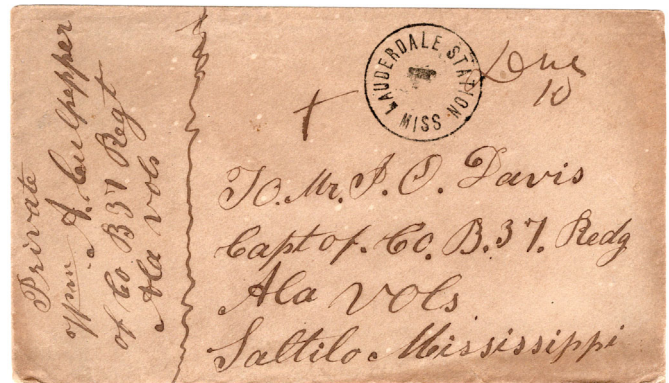 Private
Wm A. Culpepper
of Co B 37 Regt
Ala Vols
LAUDERDALE STATION MISS
Due
10
To. Mr. J. O. Davis
Capt of. Co. B. 37. Redg
Ala Vols
Saltilo Mississippi